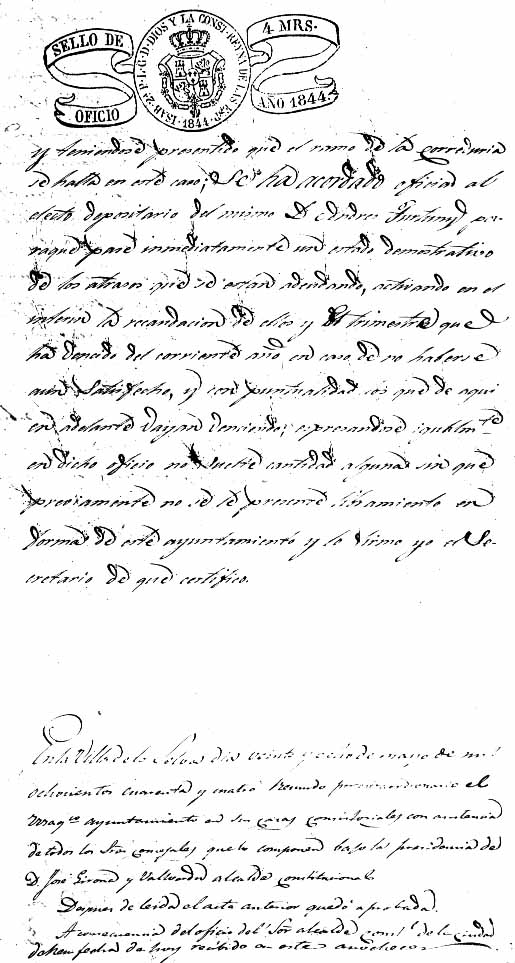 SELLO DE OFICIO
ISAB. 2ª P. L. G. D. DIOS Y LA CONST. REYNA DE LAS ESP. 1844.
4 MRS. AÑO 1844.
y teniendose presentido que el ramo de la correduria
se halla en este caso; Se ha acordado oficiar al
electo depositario del mismo D. Andres Fortuny pa-
raque pase inmediatamente un estado demostrativo
de los atrasos que se estan adeudando, activando en el
interin la recaudacion de ellos y el trimestre que
ha vencido del corriente año, en caso de no haberse
aun satisfecho, y con puntualidad los que de aqui
en adelante vayan venciendo; expresandose igualmte
en dicho oficio no suelte cantidad alguna sin que
previamente no se le presente libramiento en
forma de este ayuntamiento y lo firmo yo el Se-
cretario de que certifico.
En la Villa de la Selva dia veinte y ocho de mayo de mil
ochocientos cuarenta y cuatro reunido el
magco ayuntamiento en sus casas consistoriales con asistencia
de todos los Sres concejales que lo componen bajo la presidencia de
D. José Girona y Vallverdú alcalde constitucional.
Despues de leida el acta anterior quedó aprobada.
A consecuencia del oficio del Sor alcalde constl de la ciudad
de Reus fecha de hoy recibido en este anochecer